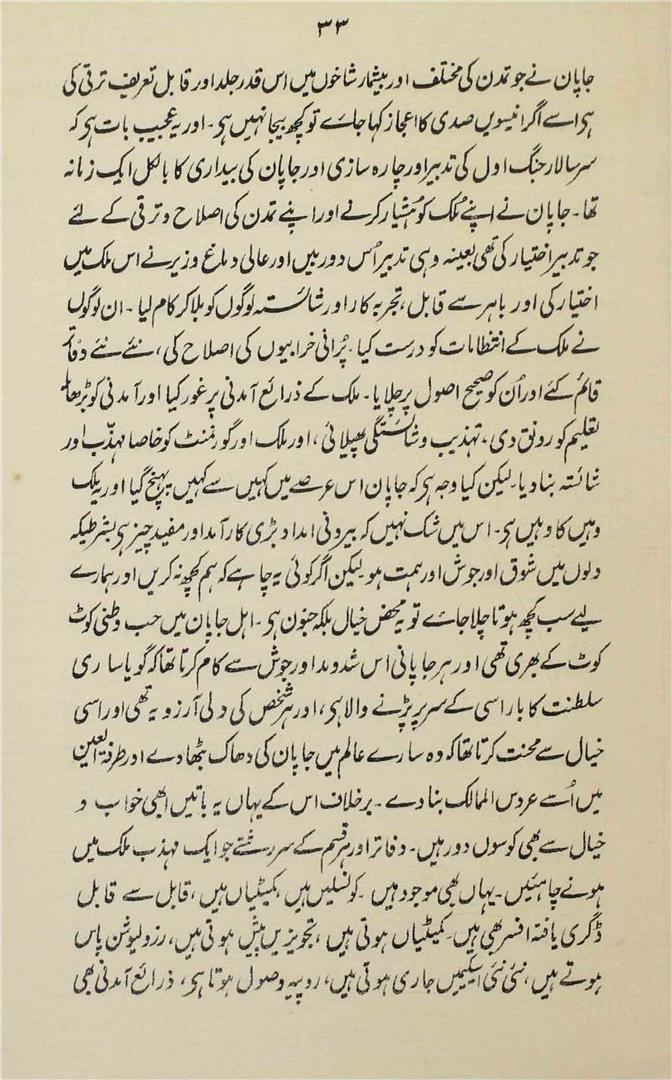 ۳۳
جاپان نے جو تمدن کی مختلف اور بیشمار شاخوں میں اس قدر جلد اور قابل تعریف ترقی کی
ہی اسے اگر انیسویں صدی کا اعجاز کہا جاے تو کچھ بیجا نہیں ہی۔ اور یہ عجیب بات ہی کہ
سر سالار جنگ اول کی تدبیر اور چارہ سازی اور جاپان کی بیداری کا بالکل ایک زمانہ
تھا۔ جاپان نے اپنے مُلک کو ہُشیار کرنے اور اپنے تمدن کی اصلاح و ترقی کے لئے
جو تدبیر اختیار کی تھی بعینہ وہی تدبیر اُس دوربیں اور عالی دماغ وزیر نے اس ملک میں
اختیار کی اور باہر سے قابل، تجربہ کار اور شائستہ لوگوں کو بلا کر کام لیا۔ ان لوگوں
نے ملک کے انتظامات کو درست کیا۔ پُرانی خرابیوں کی اصلاح کی، نئے نئے دفاتر
قائم کئے اور اُن کو صحیح اصول پر چلایا۔ ملک کے ذرائع آمدنی پر غور کیا اور آمدنی کو بڑھایا
تعلیم کو رونق دی، تہذیب و شائستگی پھیلائی، اور ملک اور گورنمنٹ کو خاصا مہذب اور
شائستہ بنا دیا۔ لیکن کیا وجہ ہی کہ جاپان اس عرصے میں کہیں سے کہیں پہنچ گیا اور یہ ملک
وہیں کا وہیں ہی۔ اس میں شک نہیں کہ بیرونی امداد بڑی کارآمد اور مفید چیز ہی بشرطیکہ
دلوں میں شوق اور جوش اور ہمت ہو لیکن اگر کوئی یہ چاہے کہ ہم کچھ نہ کریں اور ہمارے
لیے سب کچھ ہوتا چلا جاے تو یہ محض خیال بلکہ جنون ہی۔ اہل جاپان میں حب وطنی کوٹ
کوٹ کے بھری تھی اور ہر جاپانی اس شد و مد اور جوش سے کام کرتا تھا کہ گویا ساری
سلطنت کا بار اسی کے سر پر پڑنے والا ہی، اور ہر شخص کی دلی آرزو یہ تھی اور اسی
خیال سے محنت کرتا تھا کہ وہ سارے عالم میں جاپان کی دھاک بٹھا دے اور طرفۃ العین
میں اُسے عروس الممالک بنا دے۔ برخلاف اس کے یہاں یہ باتیں ابھی خواب و
خیال سے بھی کوسوں دور ہیں۔ دفاتر اور ہر قسم کے سررشتے جو ایک مہذب ملک میں
ہونے چاہئیں۔ یہاں بھی موجود ہیں۔ کونسلیں ہیں، کمیٹیاں ہیں، قابل سے قابل
ڈگری یافتہ افسر بھی ہیں۔ کمیٹیاں ہوتی ہیں، تجویزیں پیش ہوتی ہیں، رزولیوشن پاس
ہوتے ہیں، نئی نئی اسکیمیں جاری ہوتی ہیں، روپیہ وصول ہوتا ہی، ذرائع آمدنی بھی